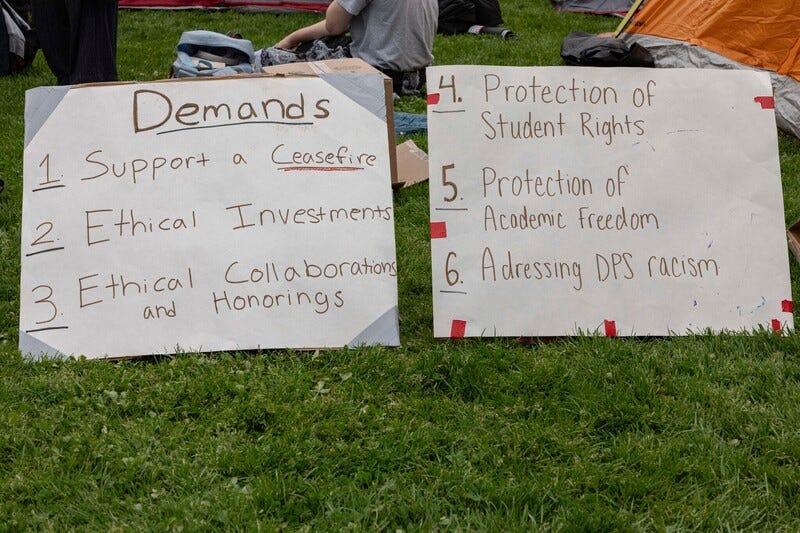 Demands
1. Support a Ceasefire
2. Ethical Investments
3. Ethical Collaborations
and Honorings
4. Protection of
Student Rights
5. Protection of
Academic Freedom
6. Adressing DPS racism